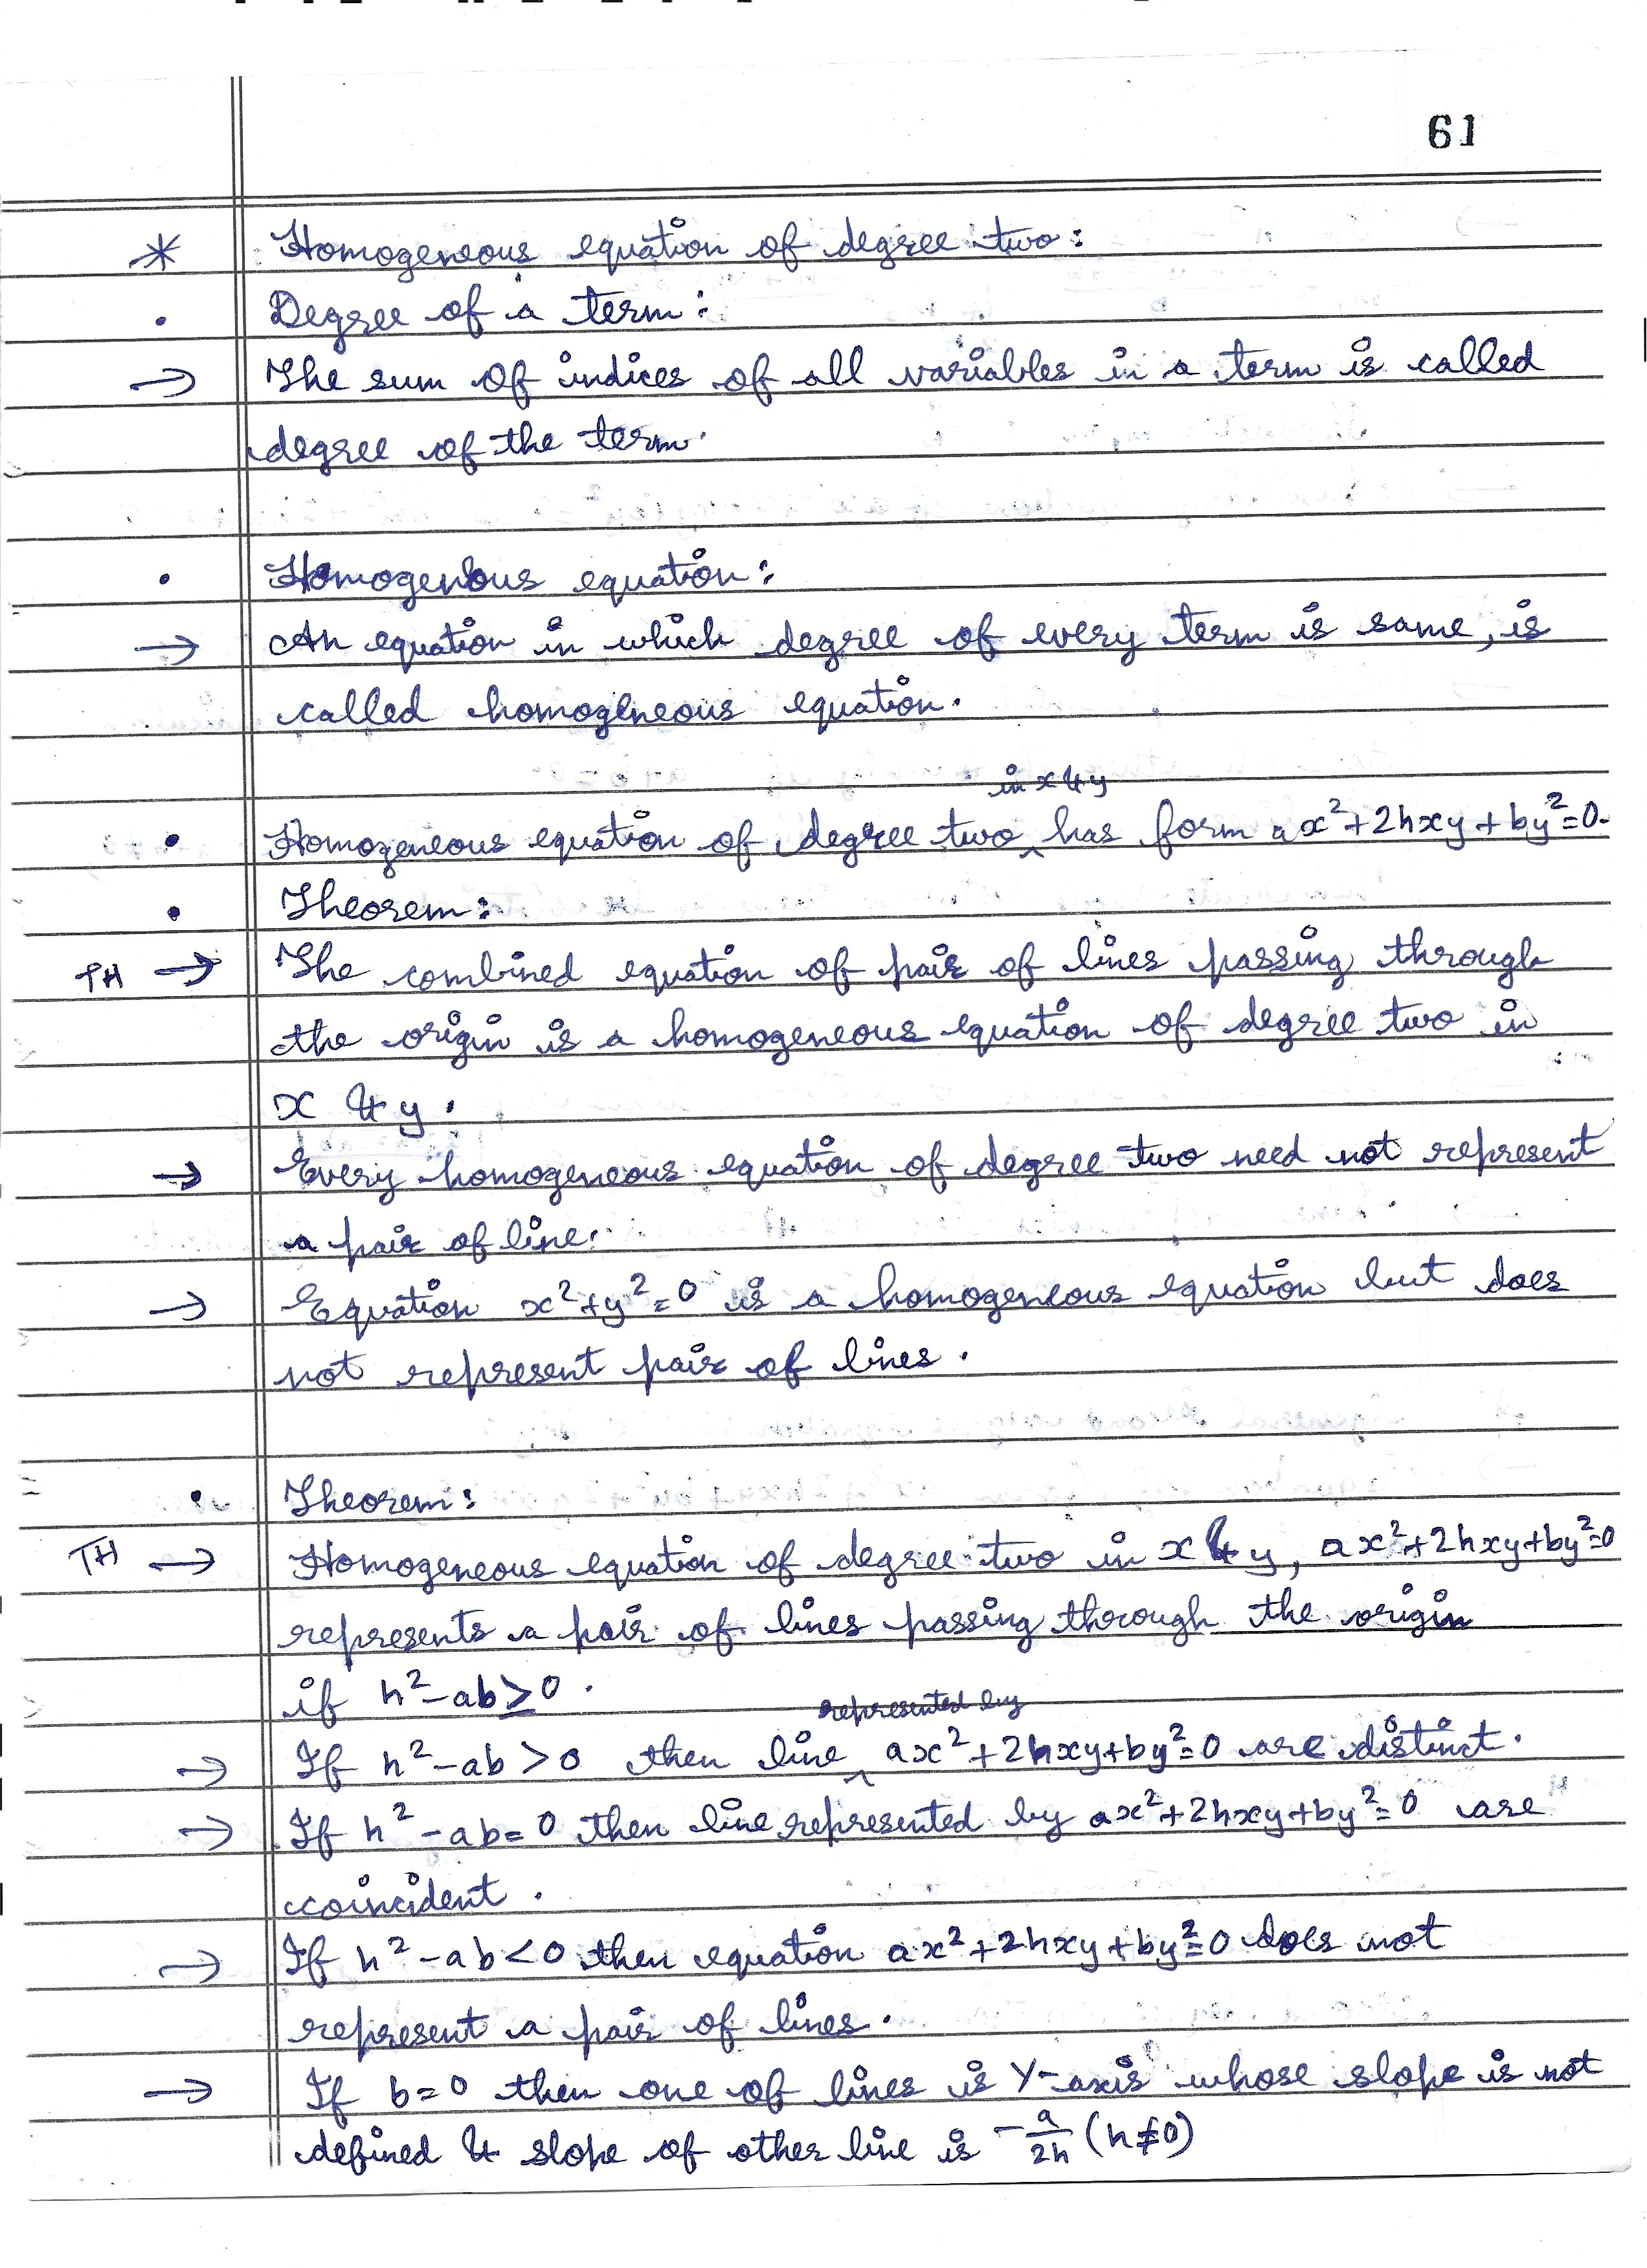 61
* Homogeneous equation of degree two:
• Degree of a term:
→ The sum of indices of all variables in a term is called
degree of the term.
• Homogenous equation:
→ An equation in which degree of every term is same, is
called homogeneous equation.
in x & y
• Homogeneous equation of degree two ^ has form ax²+2hxy+by²=0.
• Theorem:
TH → The combined equation of pair of lines passing through
the origin is a homogeneous equation of degree two in
x & y.
→ Every homogeneous equation of degree two need not represent
a pair of line.
→ Equation x²+y²=0 is a homogeneous equation but does
not represent pair of lines.
• Theorem:
TH → Homogeneous equation of degree two in x & y, ax²+2hxy+by²=0
represents a pair of lines passing through the origin
if h²-ab≥0.
represented by
→ If h²-ab>0 then line ^ ax²+2hxy+by²=0 are distinct.
→ If h²-ab=0 then line represented by ax²+2hxy+by²=0 are
coincident.
→ If h²-ab<0 then equation ax²+2hxy+by²=0 does not
represent a pair of lines.
→ If b=0 then one of lines is Y-axis whose slope is not
defined & slope of other line is -a/2h (h≠0)